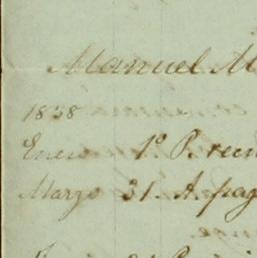 Manuel M
1838
Enero 1º P. recu
Marzo 31. A pag